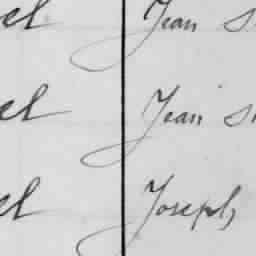 el Jean
el Jean
el Joseph